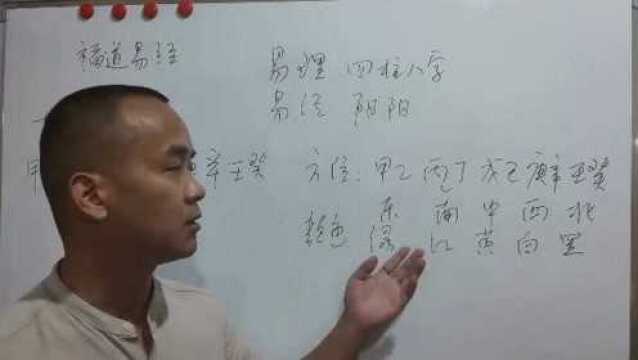 福道易经
易理 四柱八字
易经 阴阳
甲 辛壬癸
方位: 甲乙 丙丁 戊己 庚辛 壬癸
东 南 中 西 北
颜色 绿 红 黄 白 黑